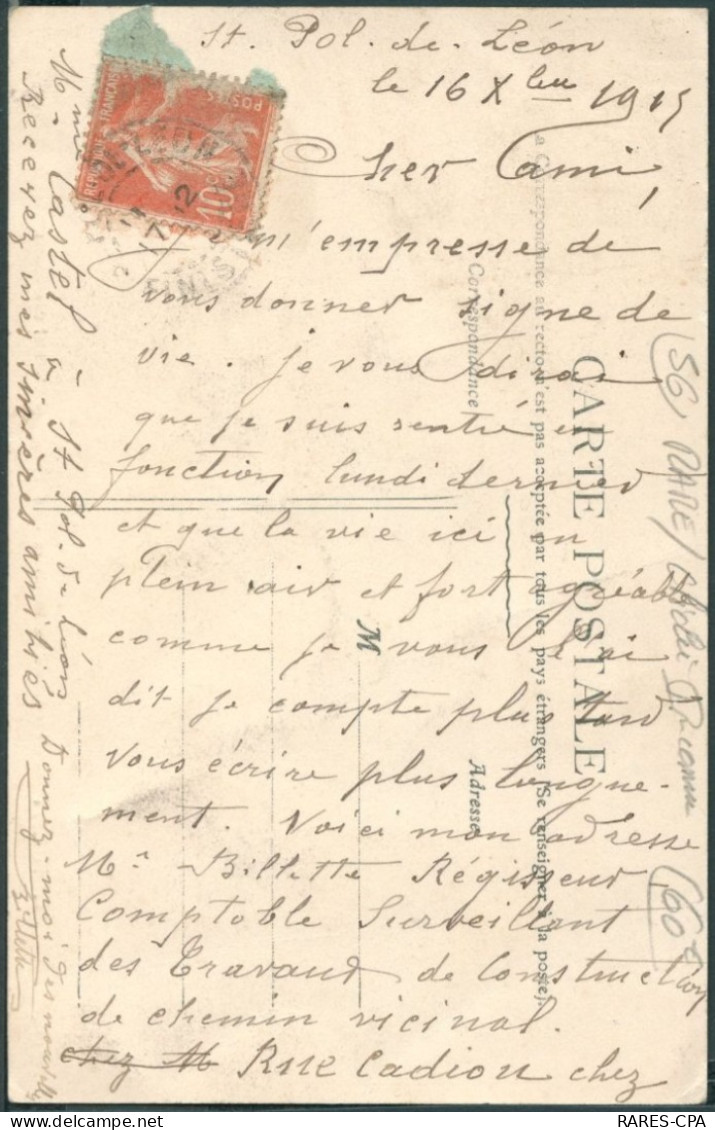 St. Pol. de. Léon
le 16 Xbre 1915
Cher Ami,
Je m'empresse de
vous donner signe de
vie. Je vous dirai
que je suis rentré en
fonction lundi dernier
et que la vie ici en
plein air et fort agréable
comme je vous l'ai
dit je compte plus tard
vous écrire plus longue-
ment. Voici mon adresse
Mr Billette Régisseur
Comptable Surveillant
des Travaux de Construction
de chemin vicinal.
chez M Rue Cadiou chez
Mme Castel à St Pol. de Léon Donnez-moi des nouvelles
Recevez mes sincères amitiés
Billette
CARTE POSTALE
La Correspondance au recto n'est pas acceptée par tous les pays étrangers (Se renseigner à la poste).
Correspondance
Adresse
M
REPUBLIQUE FRANÇAISE
POSTES
10c
17-12
FINIST
(56) RARE
(60€)
RARES-CPA